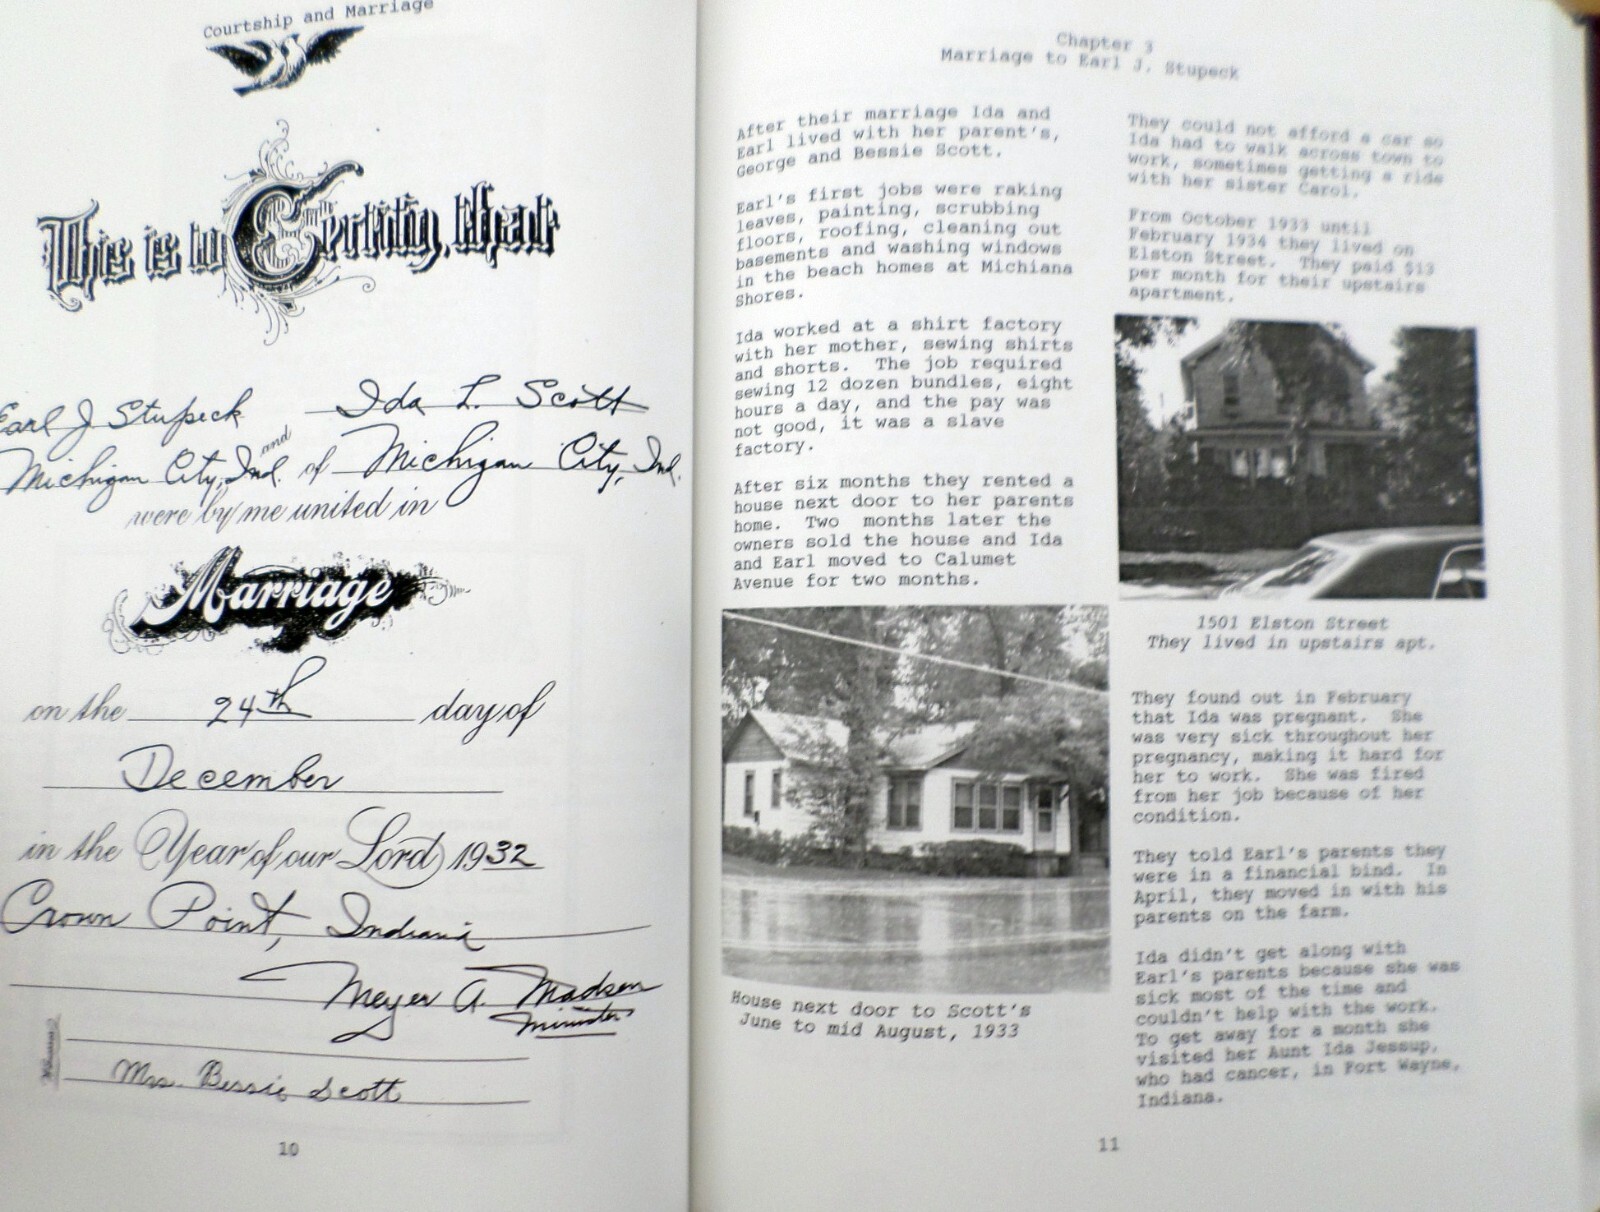 Courtship and Marriage
This is to Certify, that
Earl J Stupeck and Ida L. Scott
Michigan City, Ind. of Michigan City, Ind.
were by me united in
Marriage
on the 24th day of
December
in the Year of our Lord 1932
Crown Point, Indiana
Meyer A. Madsen
Minister
Mrs. Bessie Scott
10
Chapter 3
Marriage to Earl J. Stupeck
After their marriage Ida and
Earl lived with her parent's,
George and Bessie Scott.
Earl's first jobs were raking
leaves, painting, scrubbing
floors, roofing, cleaning out
basements and washing windows
in the beach homes at Michiana
Shores.
Ida worked at a shirt factory
with her mother, sewing shirts
and shorts. The job required
sewing 12 dozen bundles, eight
hours a day, and the pay was
not good, it was a slave
factory.
After six months they rented a
house next door to her parents
home. Two months later the
owners sold the house and Ida
and Earl moved to Calumet
Avenue for two months.
House next door to Scott's
June to mid August, 1933
They could not afford a car so
Ida had to walk across town to
work, sometimes getting a ride
with her sister Carol.
From October 1933 until
February 1934 they lived on
Elston Street. They paid $13
per month for their upstairs
apartment.
1501 Elston Street
They lived in upstairs apt.
They found out in February
that Ida was pregnant. She
was very sick throughout her
pregnancy, making it hard for
her to work. She was fired
from her job because of her
condition.
They told Earl's parents they
were in a financial bind. In
April, they moved in with his
parents on the farm.
Ida didn't get along with
Earl's parents because she was
sick most of the time and
couldn't help with the work.
To get away for a month she
visited her Aunt Ida Jessup,
who had cancer, in Fort Wayne,
Indiana.
11